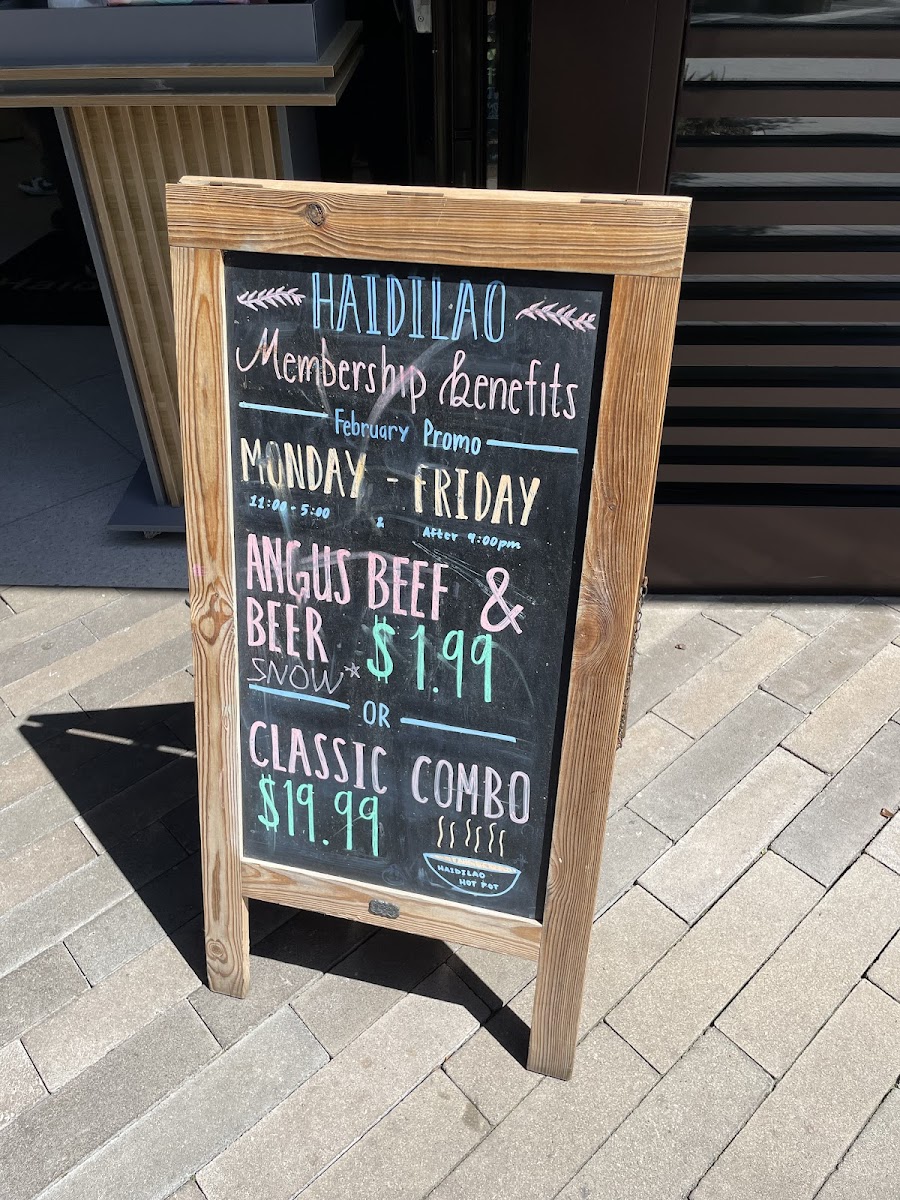 HAIDILAO
Membership Benefits
February Promo
MONDAY - FRIDAY
11:00 - 5:00 & After 9:00pm
ANGUS BEEF &
BEER $1.99
SNOW*
OR
CLASSIC COMBO
$19.99
HAIDILAO
HOT POT